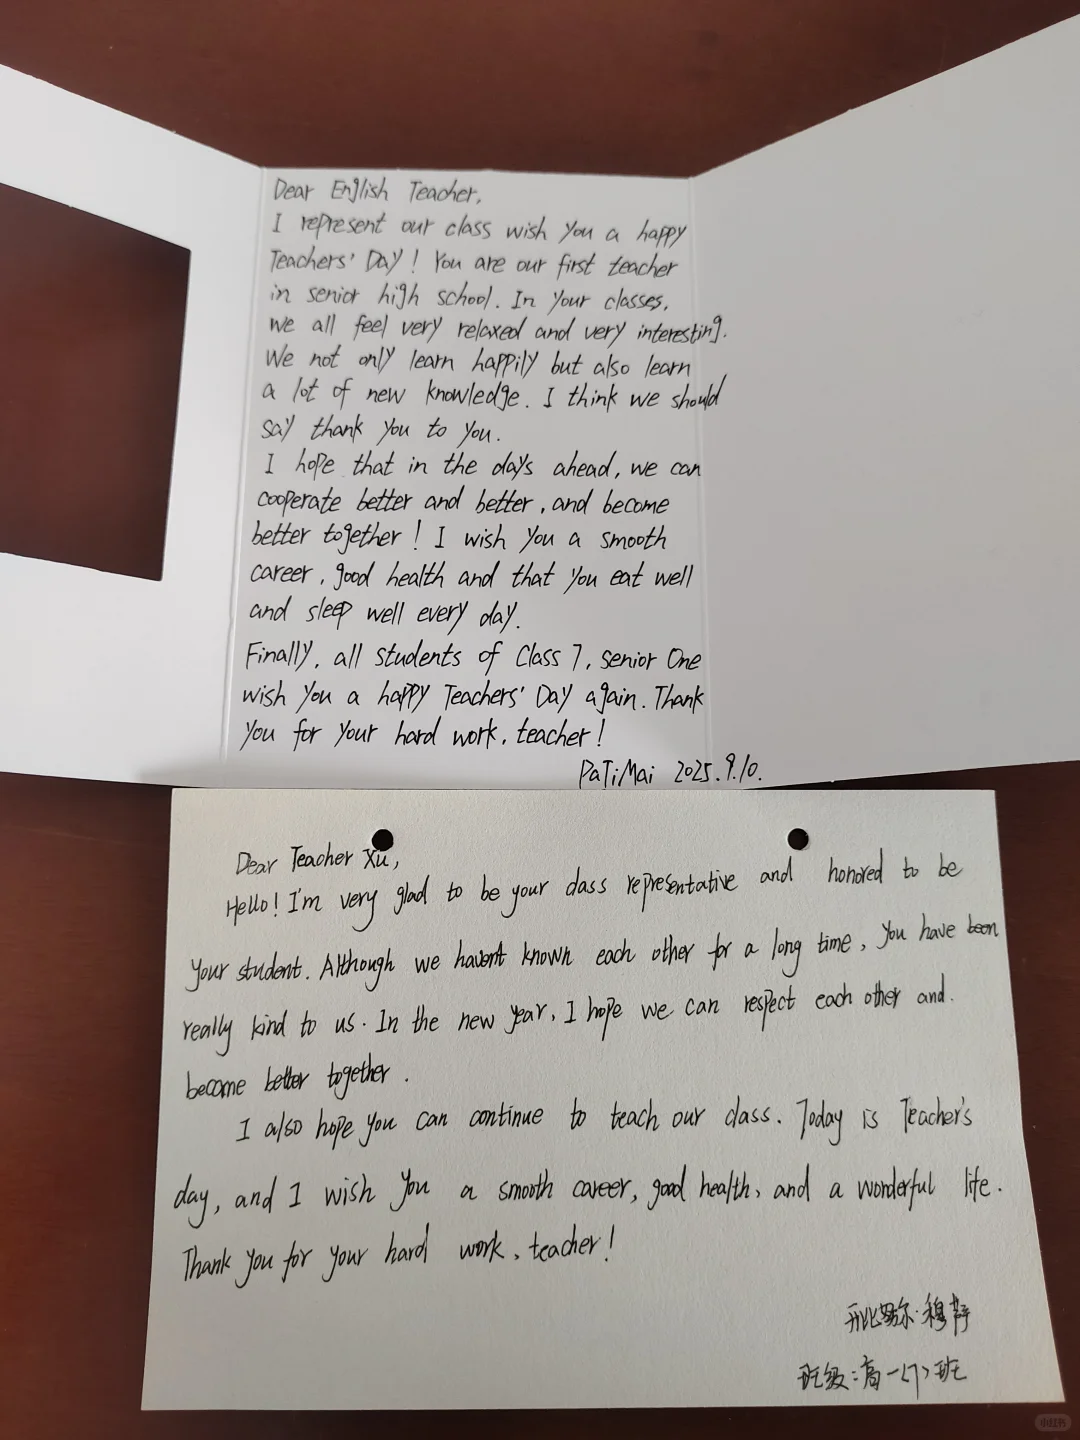 Dear English Teacher,
I represent our class wish you a happy
Teachers' Day! You are our first teacher
in senior high school. In your classes,
we all feel very relaxed and very interesting.
We not only learn happily but also learn
a lot of new knowledge. I think we should
say thank you to you.
I hope that in the days ahead, we can
cooperate better and better, and become
better together! I wish you a smooth
career, good health and that you eat well
and sleep well every day.
Finally, all students of Class 7, senior One
wish you a happy Teachers' Day again. Thank
you for your hard work, teacher!
PaTiMai 2025.9.10.
Dear Teacher Xu,
Hello! I'm very glad to be your class representative and honored to be
your student. Although we haven't known each other for a long time, you have been
really kind to us. In the new year, I hope we can respect each other and.
become better together.
I also hope you can continue to teach our class. Today is Teacher's
day, and I wish you a smooth career, good health, and a wonderful life.
Thank you for your hard work, teacher!
努尔·穆
班级:高一(7)班
小红书